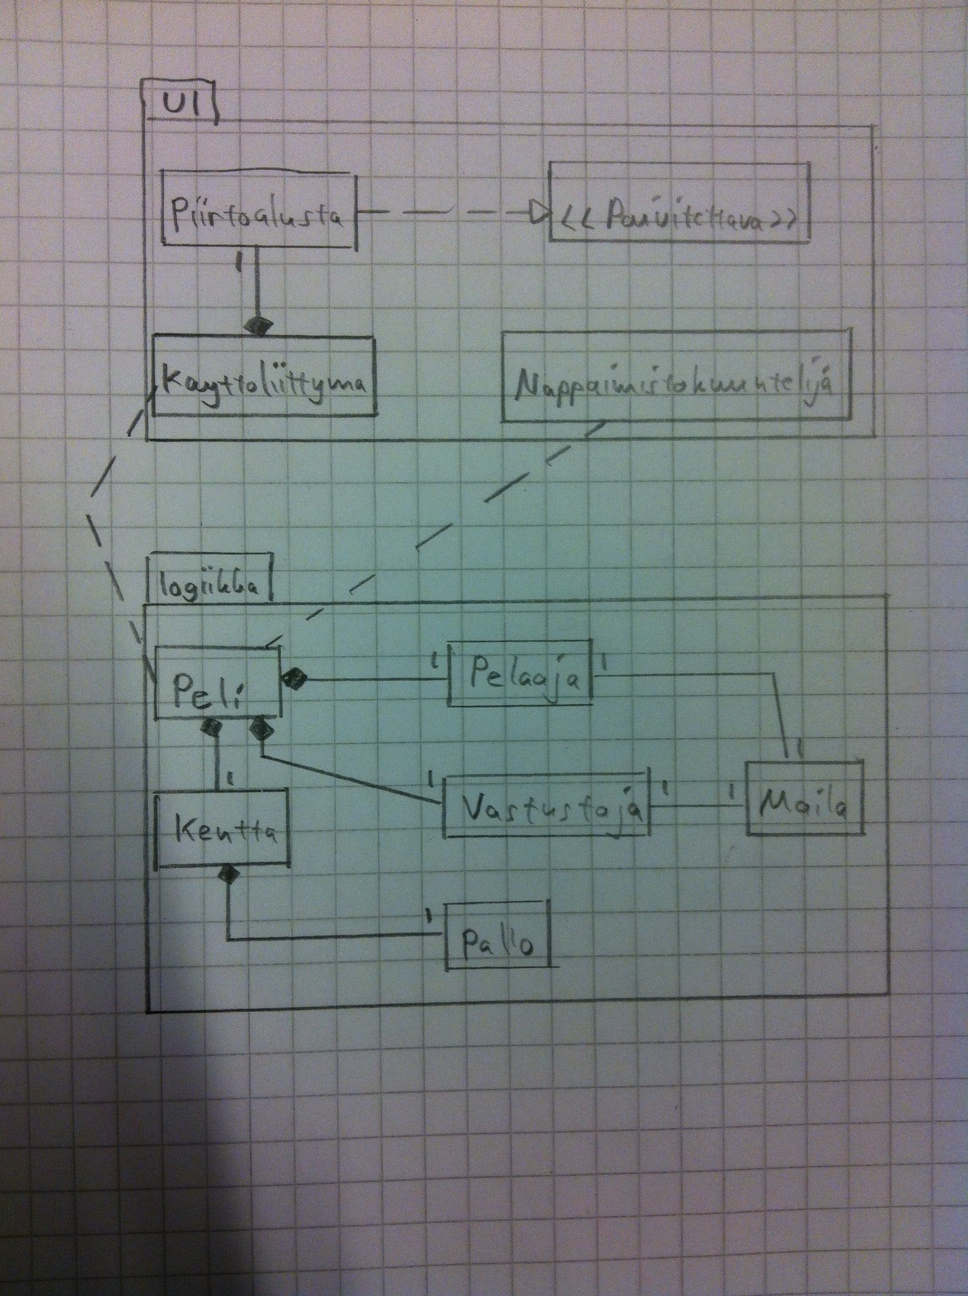 UI
Piirtoalusta
<<Paivitettava>>
Kayttoliittyma
Nappaimistokuuntelija
logiikka
1
1
1
Peli
Pelaaja
1
1
1
1
1
Kentta
Vastustaja
Maila
1
Pallo